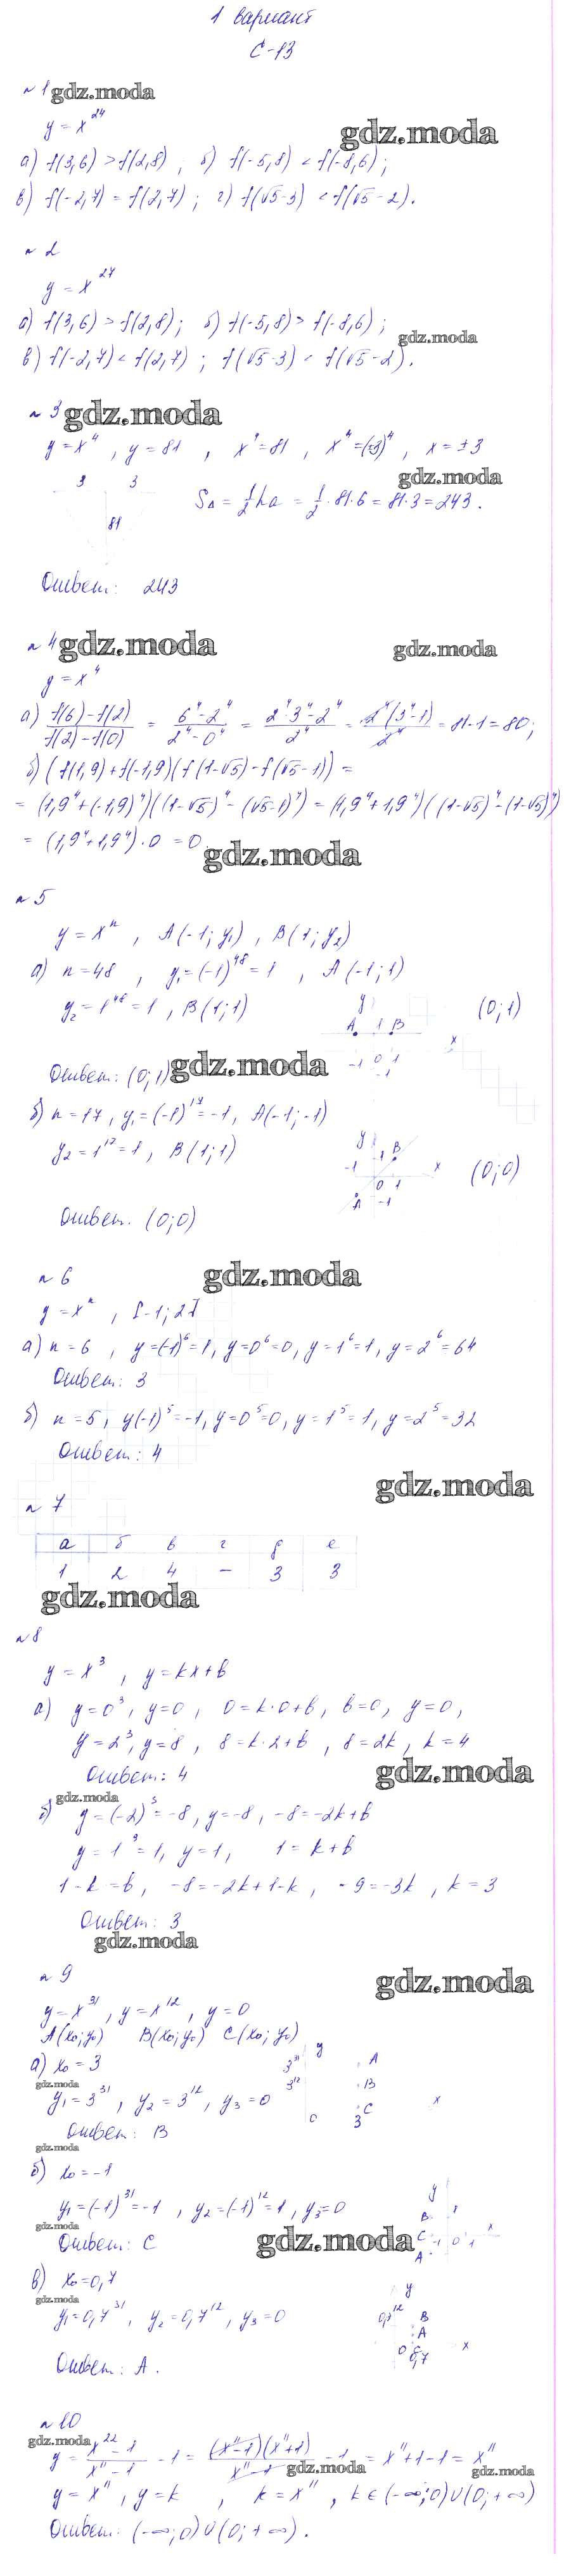 1 вариант
С-13
№1 gdz.moda
y = x^24
gdz.moda
а) f(3,6) > f(2,8) ; б) f(-5,8) < f(-8,6) ;
в) f(-2,7) = f(2,7) ; г) f(√5-3) < f(√5-2).
№2
y = x^27
а) f(3,6) > f(2,8) ; б) f(-5,8) > f(-8,6) ;
gdz.moda
в) f(-2,7) < f(2,7) ; f(√5-3) < f(√5-2).
№3 gdz.moda
y = x^4 , y = 81 , x^4 = 81 , x^4 = (±3)^4 , x = ±3
gdz.moda
3 3
S△ = 1/2 ha = 1/2 · 81 · 6 = 81 · 3 = 243.
81
Ответ: 243
№4 gdz.moda gdz.moda
y = x^4
а) (f(6)-f(2))/(f(2)-f(0)) = (6^4-2^4)/(2^4-0^4) = (2^4·3^4-2^4)/2^4 = 2^4(3^4-1)/2^4 = 81-1 = 80;
б) (f(1,9)+f(-1,9)(f(1-√5)-f(√5-1)) =
= (1,9^4+(-1,9)^4)((1-√5)^4-(√5-1)^4) = (1,9^4+1,9^4)((1-√5)^4-(1-√5)^4)
= (1,9^4+1,9^4)·0 = 0.
gdz.moda
№5
y = x^n , A(-1; y1) , B(1; y2)
а) n = 48 , y1 = (-1)^48 = 1 , A(-1; 1)
y2 = 1^48 = 1 , B(1; 1)
y
A 1 B
x
-1 0 1
-1
(0; 1)
Ответ: (0; 1) gdz.moda
б) n = 17 , y1 = (-1)^17 = -1, A(-1; -1)
y2 = 1^17 = 1 , B(1; 1)
y
1 B
-1 x
0 1
A -1
(0; 0)
Ответ. (0; 0)
№6 gdz.moda
y = x^n , [-1; 2]
а) n = 6 , y = (-1)^6 = 1, y = 0^6 = 0, y = 1^6 = 1, y = 2^6 = 64
Ответ: 3
б) n = 5, y(-1)^5 = -1, y = 0^5 = 0, y = 1^5 = 1, y = 2^5 = 32
Ответ: 4
gdz.moda
№7
а б в г д е
1 2 4 – 3 3
gdz.moda
№8
y = x^3 , y = kx+b
а) y = 0^3, y = 0 , 0 = k·0+b, b = 0, y = 0,
y = 2^3, y = 8 , 8 = k·2+b , 8 = 2k, k = 4
Ответ: 4
gdz.moda
gdz.moda
б) y = (-2)^3 = -8, y = -8, -8 = -2k+b
y = 1^3 = 1, y = 1, 1 = k+b
1-k = b, -8 = -2k+1-k , -9 = -3k , k = 3
Ответ: 3
gdz.moda
№9
gdz.moda
y = x^31 , y = x^12 , y = 0
A(x0; y0) B(x0; y0) C(x0; y0)
а) x0 = 3
gdz.moda
y1 = 3^31 , y2 = 3^12 , y3 = 0
y
3^31 A
3^12 B
C x
0 3
Ответ: B
gdz.moda
б) x0 = -1
y1 = (-1)^31 = -1 , y2 = (-1)^12 = 1 , y3 = 0
gdz.moda
Ответ: C
gdz.moda
y
B 1
C -1 0 1 x
A
в) x0 = 0,7
gdz.moda
y1 = 0,7^31 , y2 = 0,7^12 , y3 = 0
y
0,7^12 B
A
0 C x
0,7
Ответ: A.
№10
gdz.moda
y = (x^22-1)/(x^11-1) - 1 = (x^11-1)(x^11+1)/(x^11-1) - 1 = x^11+1-1 = x^11
gdz.moda
gdz.moda
y = x^11 , y = k , k = x^11 , k ∈ (-∞; 0) ∪ (0; +∞)
Ответ: (-∞; 0) ∪ (0; +∞).